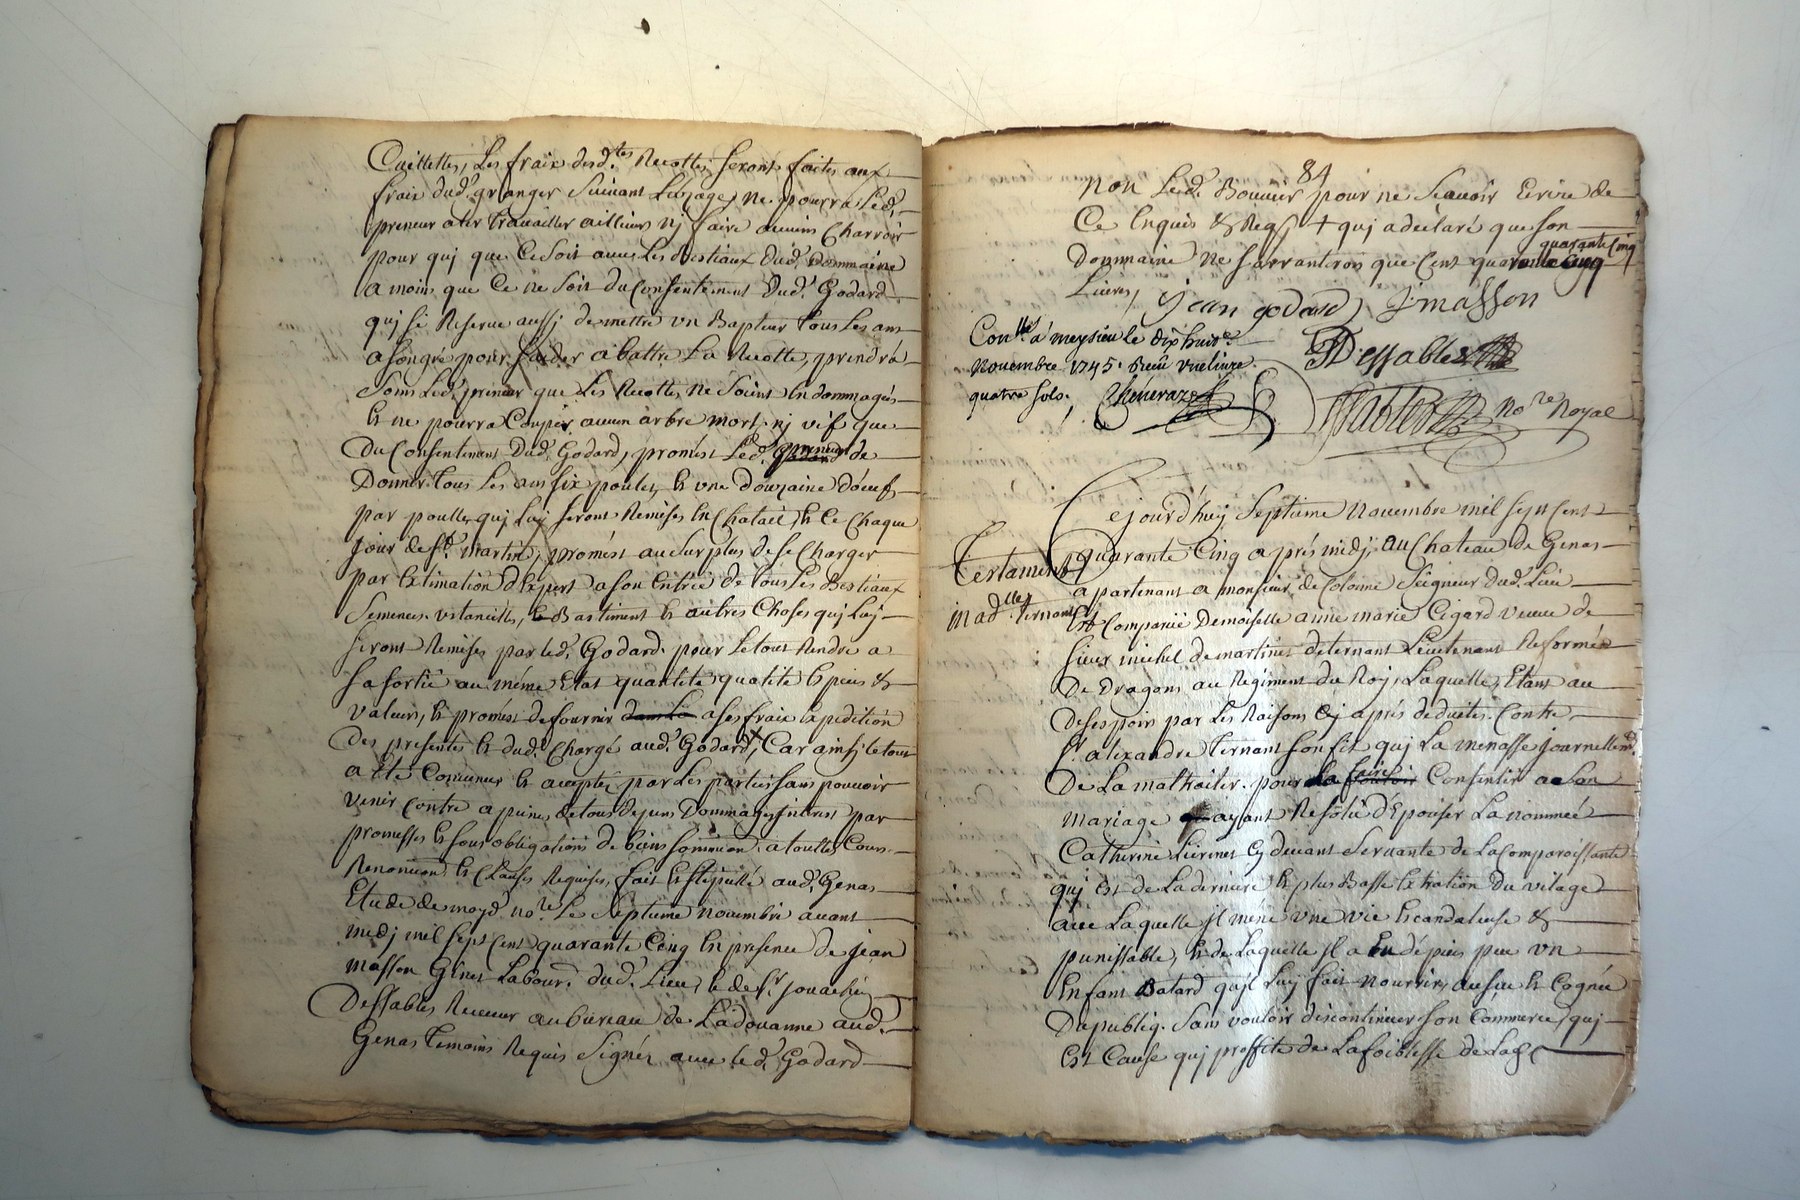 Cuillettes, Les fraix desd.tes Recoltes seront faites aux
fraix dud. granger suivant Luzage, ne pourra Led.
preneur aler travailler ailliurs nj faire aucuns Charroix
pour quj que Ce soit avec Les Bestiaux dud. Dommaine
a moins que Ce ne soit du Consentement dud. Godard
quj se Reserve aussj de mettre vn Bapteur tous Les ans
a son gré pour faider a battre La Recolte, prendra
soins Led. preneur que Les Recoltes ne soient Endommagés
Et ne pourra Couper aucun arbre mort nj vif que
du Consentement dud. Godard, promést Led. preneur de
Donner tous Les ans six poulles, & vne douzaine d'oeufs
par poulles quj Luj seront Remises En Chatail, & Ce Chaque
jour de st. martin, promést au surplus de se Charger
par Estimation d'Expert a son Entrée de tous Les Bestiaux
semences vstancilles, Bastiment & autres Choses quj Luj
seront Remises par led. Godard. pour Le tout Rendre a
sa sortie au méme Etat quantité qualité Espéces &
valeur, & promést de fournir a ses fraix Expedition
des presentes & dud. Chargé aud. Godard, Car ainsj le tout
a été Convenus & accepté par Les parties sans pouvoir
venir Contre a peine de tous dépens Dommages Interest par
promesses & sous obligations de biens soumission a touttes Cours
Renontion & Clauses Requises, fait & stipullé aud. Genas
Etude de moyd. no.re Le septieme novembre avant
midj mil sept Cent quarante Cinq En presence de jean
masson Genet Labour. dud. Lieu, & de sr. jouachin
Dessables Receveur au bureau de La douanne aud.
Genas temoins Requis signés avec led. Godard
84
non Led. Bouvier pour ne sçavoir Ecrire de
Ce Enquis & Reqs + quj a déclaré que son
Dommaine ne s'arranteroit que Cent quarante Cinq
quarante Cinq
Livres, jean godard J masson
Con.llé a meysieu le dix huit
novembre 1745. Receu vne livre
quatre sols. Chéneraz
Dessables
Dessables no.re Royal
Testament
mad.lle ternant
Cejourd'huj septieme novembre mil sept Cent
quarante Cinq aprés midj au Chateau de Genas
apartenant a monsieur de Colonne seigneur dud. Lieu
Est Comparüe Demoiselle anne marie Cigard veuve de
sieur michel de martinet de ternant Lieutenant Reformé
De Dragons au Regiment du Roj, Laquelle Etant au
desespoir par Les Raisons Cj aprés deduites Contre
sr. alexandre ternant son fils quj La menasse journellemt.
De La maltraiter. pour Consentir a son
mariage ayant Résolu d'Epouser La nommée
Catherine Cj devant servante de La Comparoissante
quj Est de La derniere & plus Basse Extration du vilage
avec Laquelle jl méne vne vie Escandaleuse &
punissable, & de Laquelle jl a Eu dépuis peu vn
Enfant Batard qu'jl Luj fait nourrir, au sceu & Cognu
Du publiq. sans vouloir discontinuer son Commerce, quj
Est Cause quj proffite de La foiblesse de Las